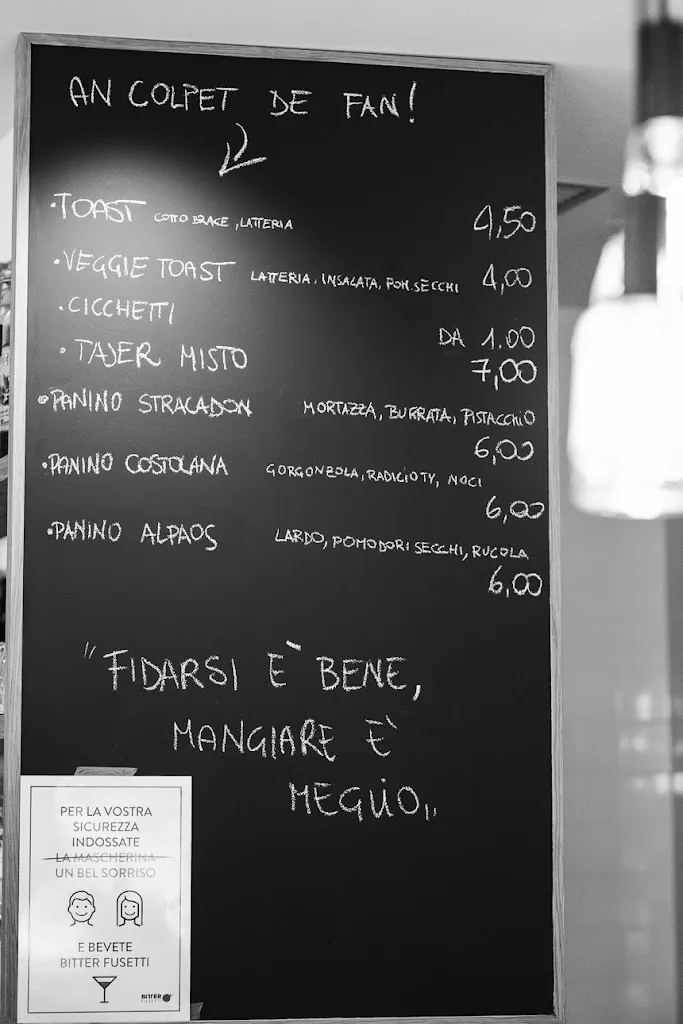 AN COLPET DE FAN!
·TOAST COTTO BRACE, LATTERIA 4,50
·VEGGIE TOAST LATTERIA, INSALATA, POM. SECCHI 4,00
·CICCHETTI DA 1.00
·TAJER MISTO 7,00
·PANINO STRACADON MORTAZZA, BURRATA, PISTACCHIO
6,00
·PANINO COSTOLANA GORGONZOLA, RADICIOTY, NOCI
6,00
·PANINO ALPAOS LARDO, POMODORI SECCHI, RUCOLA
6,00
"FIDARSI E` BENE,
MANGIARE E`
MEGLIO„
PER LA VOSTRA
SICUREZZA
INDOSSATE
LA MASCHERINA
UN BEL SORRISO
E BEVETE
BITTER FUSETTI
BITTER
FUSETTI